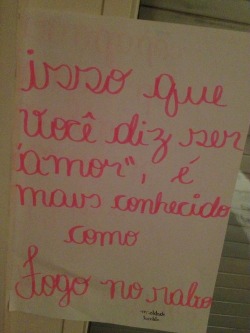 isso que
você diz ser
"amor", é
mais conhecido
como
Fogo no rabo